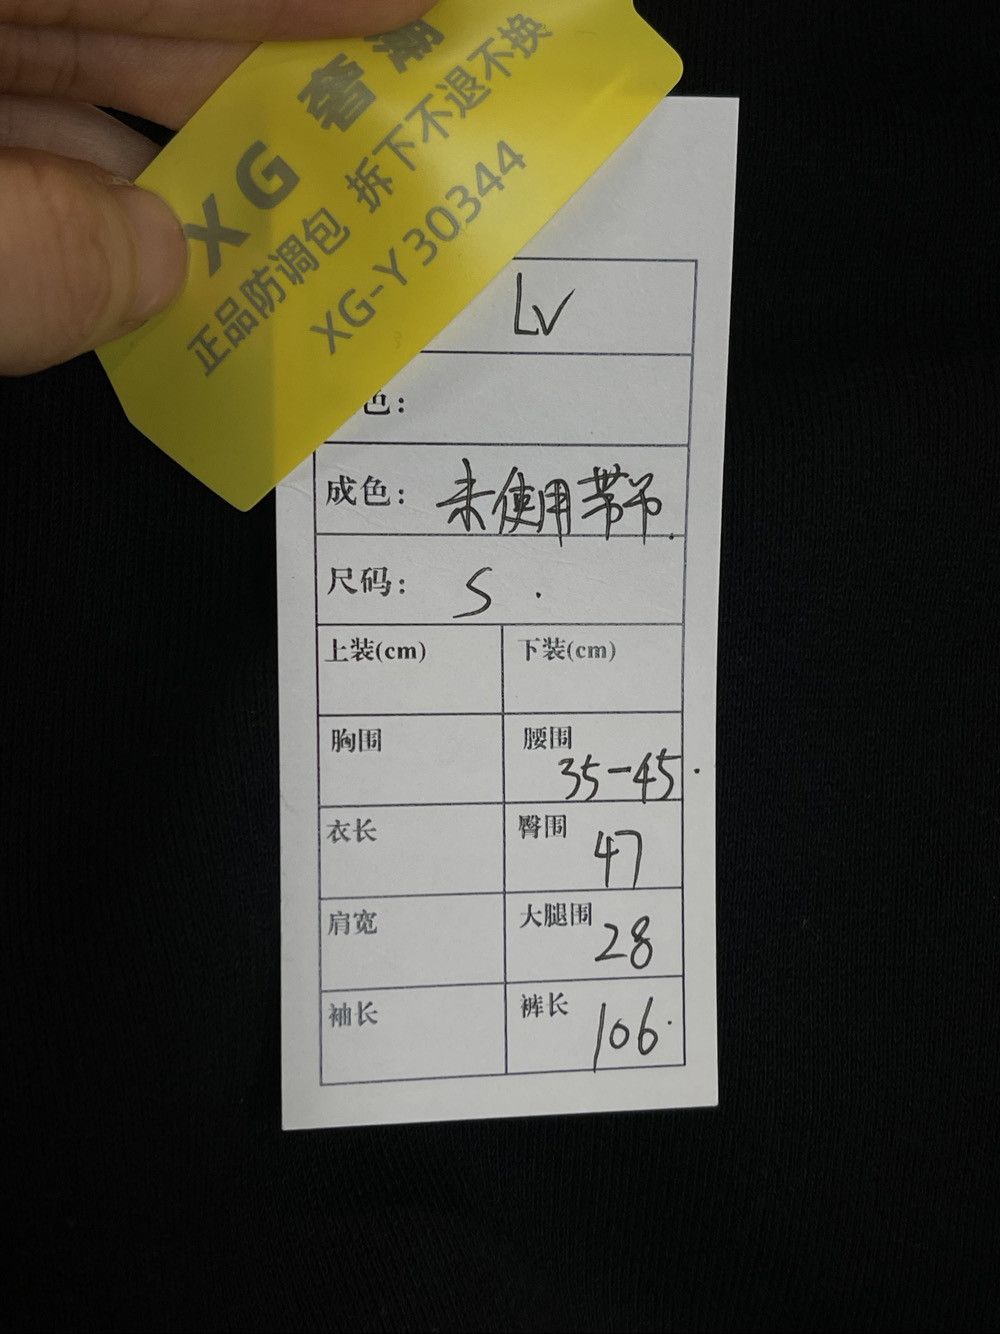 XG 奢潮
正品防调包 拆下不退不换
XG-Y30344
LV
色：
成色： 未使用带吊.
尺码： S .
上装(cm) 下装(cm)
胸围 腰围 35-45.
衣长 臀围 47
肩宽 大腿围 28
袖长 裤长 106.